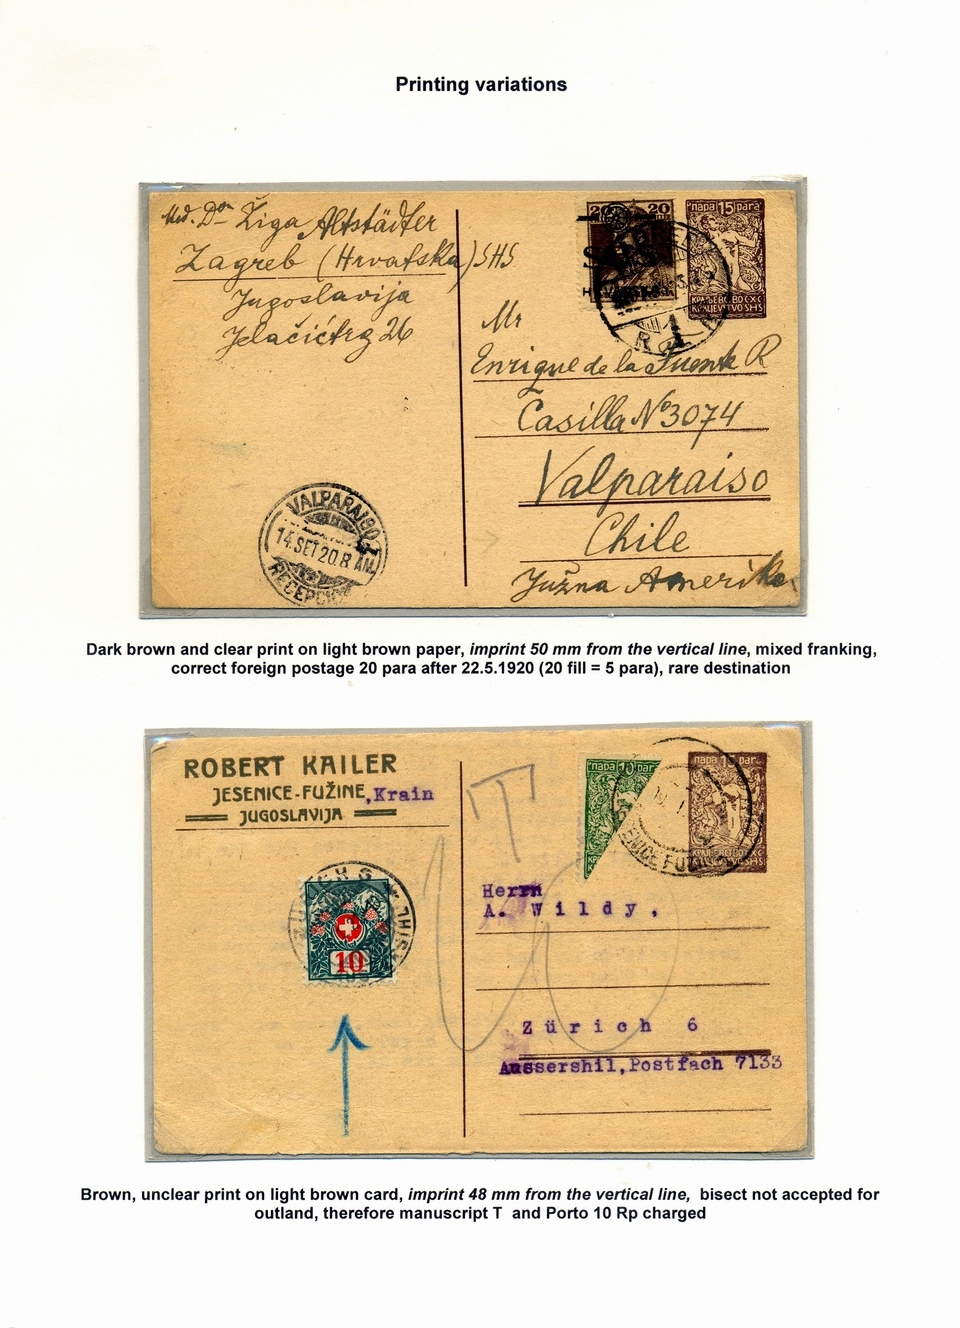 Printing variations
Med. Don Žiga Altstädter
Zagreb (Hrvatska) SHS
Jugoslavija
Jelačićtrg 26
20 20
папа 15 para
КРАЉЕВСТВО С·Х·С
KRALJEVSTVO SHS
R 1
Mr
Enrique de la Fuente R
Casilla No 3074
Valparaiso
Chile
Južna Amerika
VALPARAISO 1
14.SET 20.8 AM
RECEPCION
Dark brown and clear print on light brown paper, imprint 50 mm from the vertical line, mixed franking,
correct foreign postage 20 para after 22.5.1920 (20 fill = 5 para), rare destination
ROBERT KAILER
JESENICE-FUŽINE, Krain
JUGOSLAVIJA
T
10
Herrn
A. Wildy,
Zürich 6
Aussershil, Postfach 7133
Brown, unclear print on light brown card, imprint 48 mm from the vertical line, bisect not accepted for
outland, therefore manuscript T and Porto 10 Rp charged